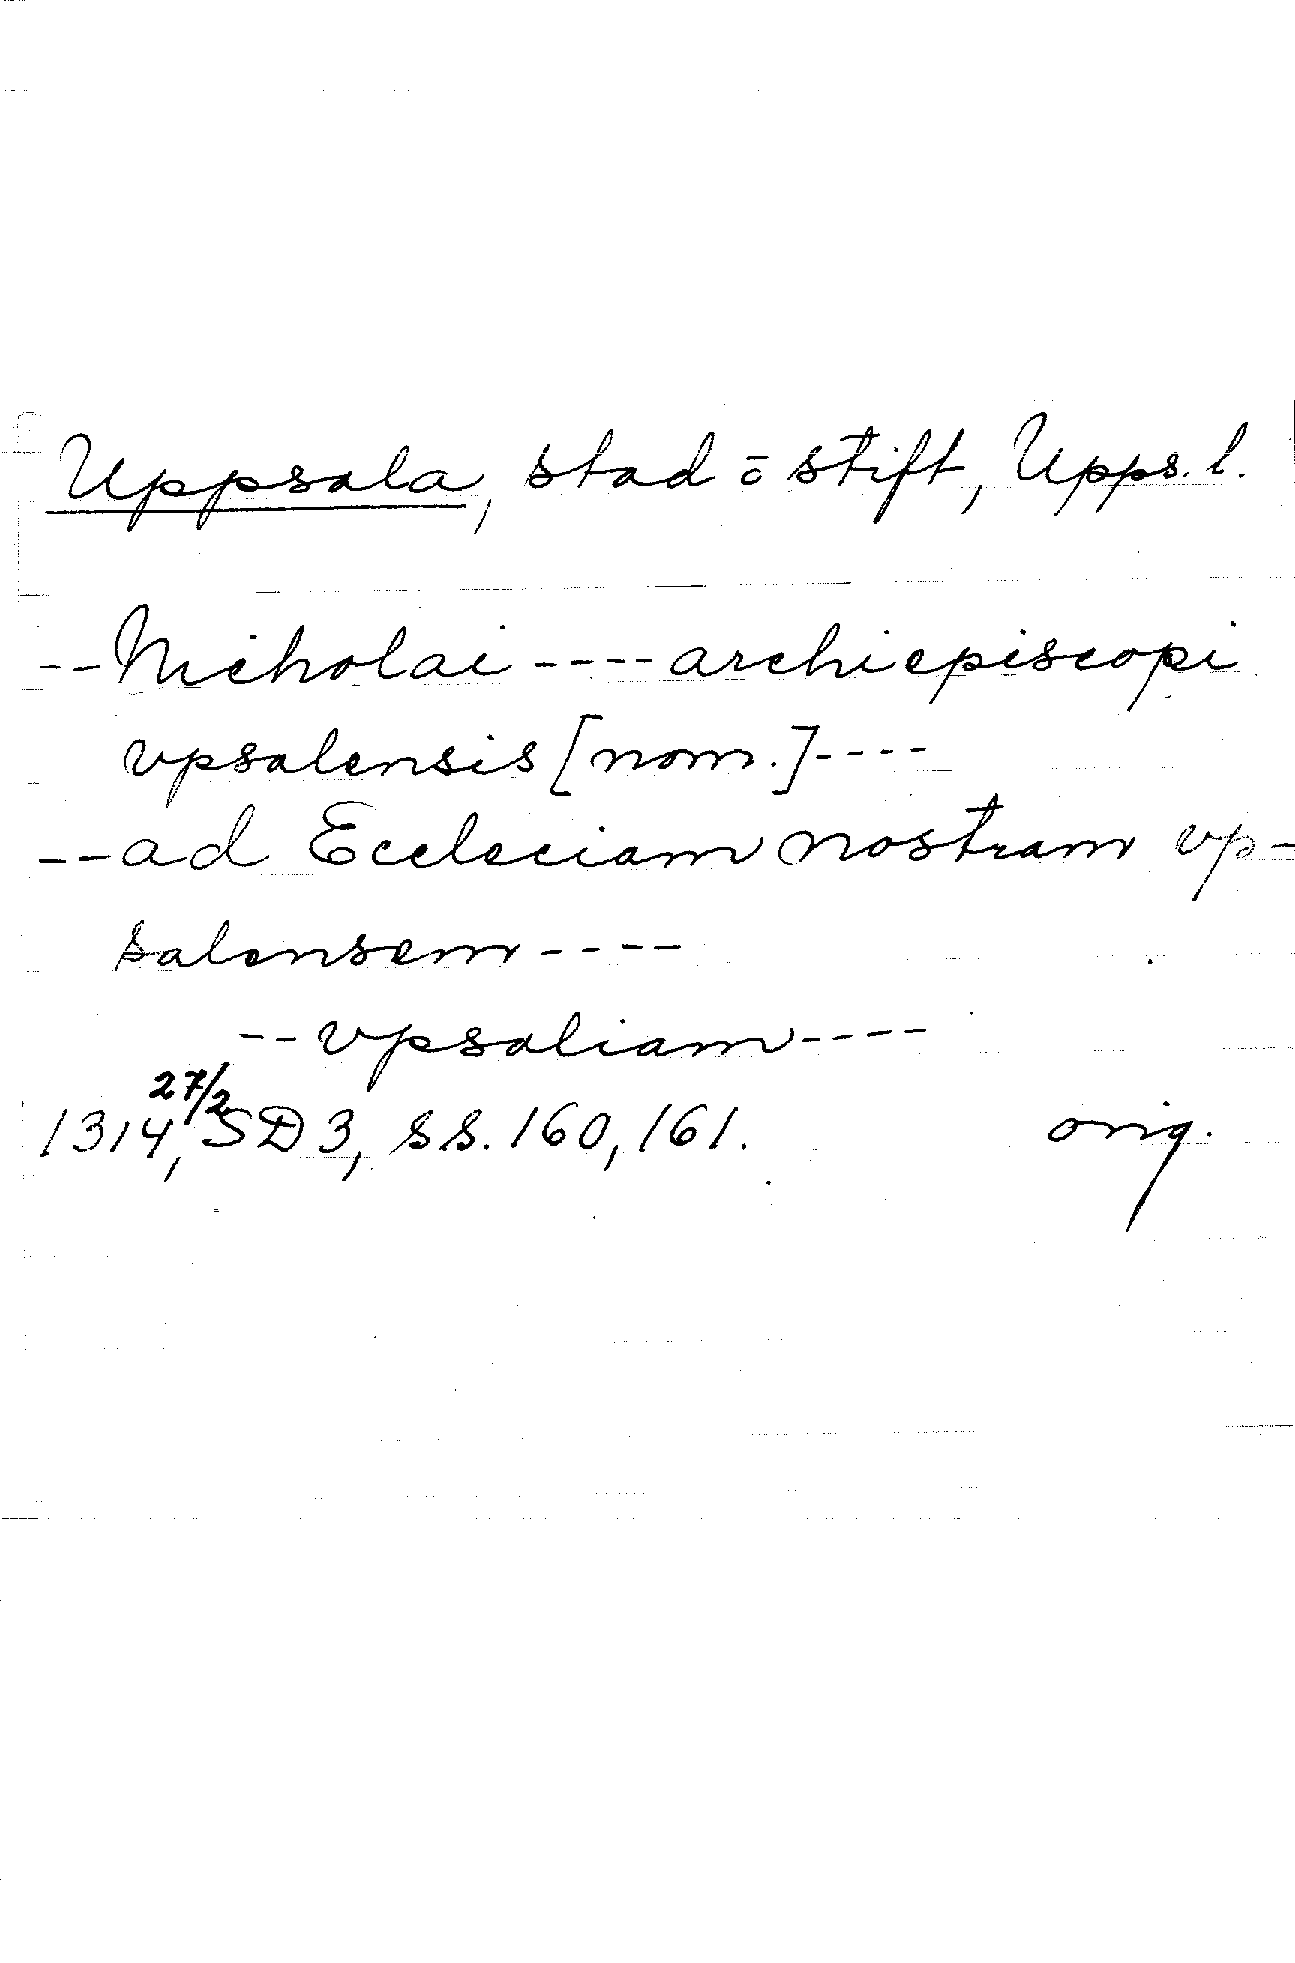 Uppsala, stad o stift, Upps. l.
--Nicholai----archiepiscopi
vpsalensis [nom.]----
--ad Eccleciam nostram vp-
salensem----
--vpsaliam----
27/2
1314, SD 3, ss. 160, 161. orig.